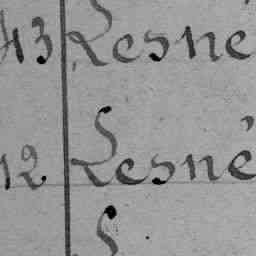 43 Lesné
12 Lesné